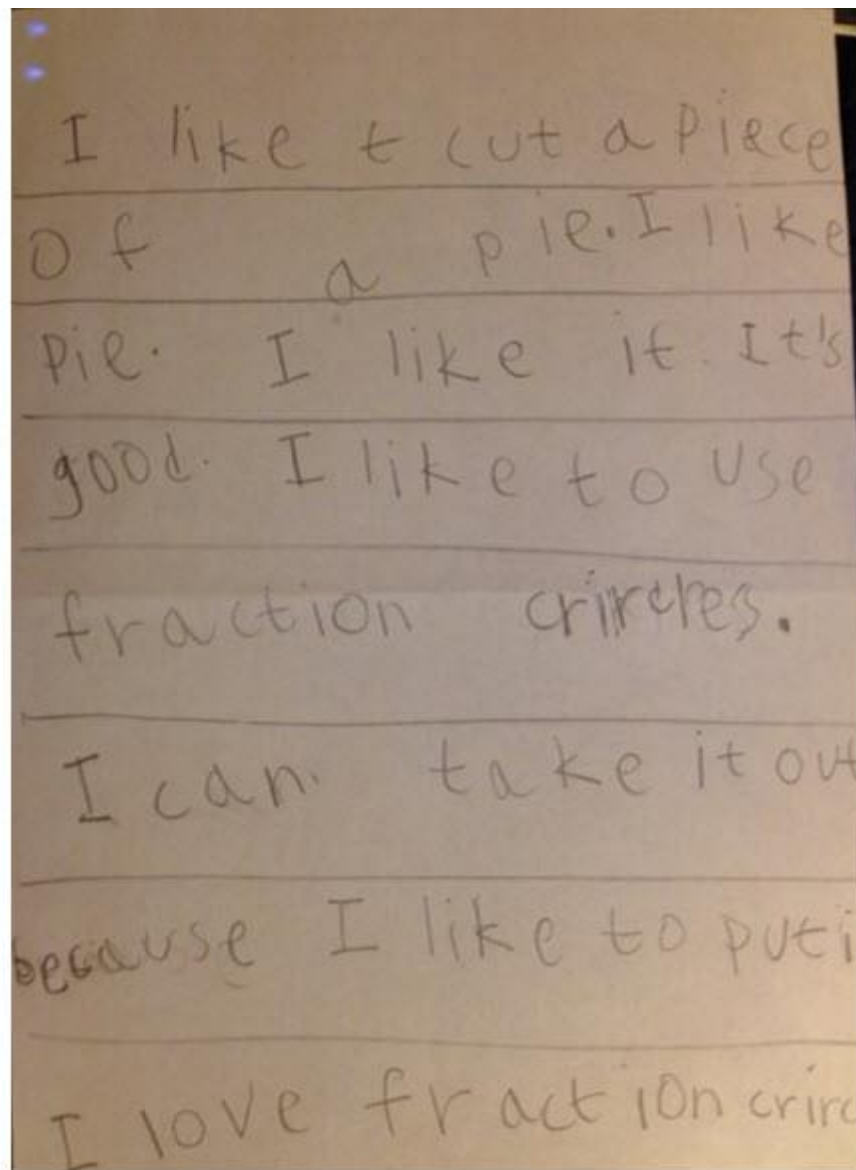 I like t cut a piece
Of a pie. I like
pie. I like it. It's
good. I like to use
fraction crircres.
I can. take it out
because I like to put i
I love fraction crirc